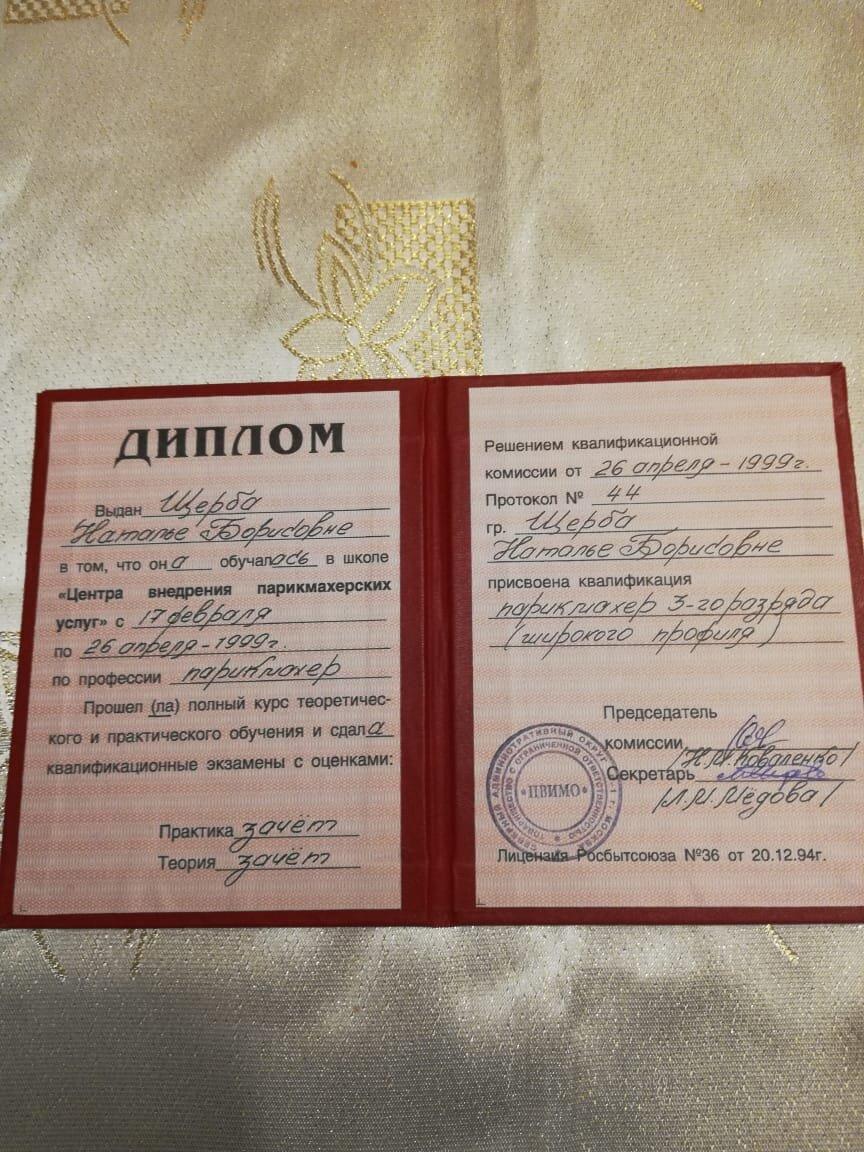 ДИПЛОМ
Выдан Щерба
Наталье Борисовне
в том, что она обучалась в школе
«Центра внедрения парикмахерских
услуг» с 17 февраля
по 26 апреля - 1999г.
по профессии парикмахер
Прошел (ла) полный курс теоретичес-
кого и практического обучения и сдала
квалификационные экзамены с оценками:
Практика зачёт
Теория зачёт
Решением квалификационной
комиссии от 26 апреля - 1999г.
Протокол № 44
гр. Щерба
Наталье Борисовне
присвоена квалификация
парикмахер 3-го разряда
(широкого профиля)
Председатель
комиссии
/Н.М. Коваленко/
Секретарь
/Л.М. Мёдова/
СЕВЕРНЫЙ АДМИНИСТРАТИВНЫЙ ОКРУГ г. МОСКВЫ
ТОВАРИЩЕСТВО С ОГРАНИЧЕННОЙ ОТВЕТСТВЕННОСТЬЮ
«ПВИМО»
Лицензия Росбытсоюза №36 от 20.12.94г.